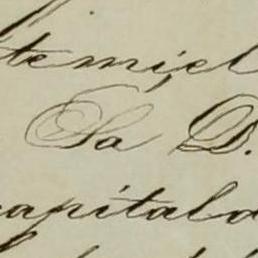 temiel
Sa D.
capitalo